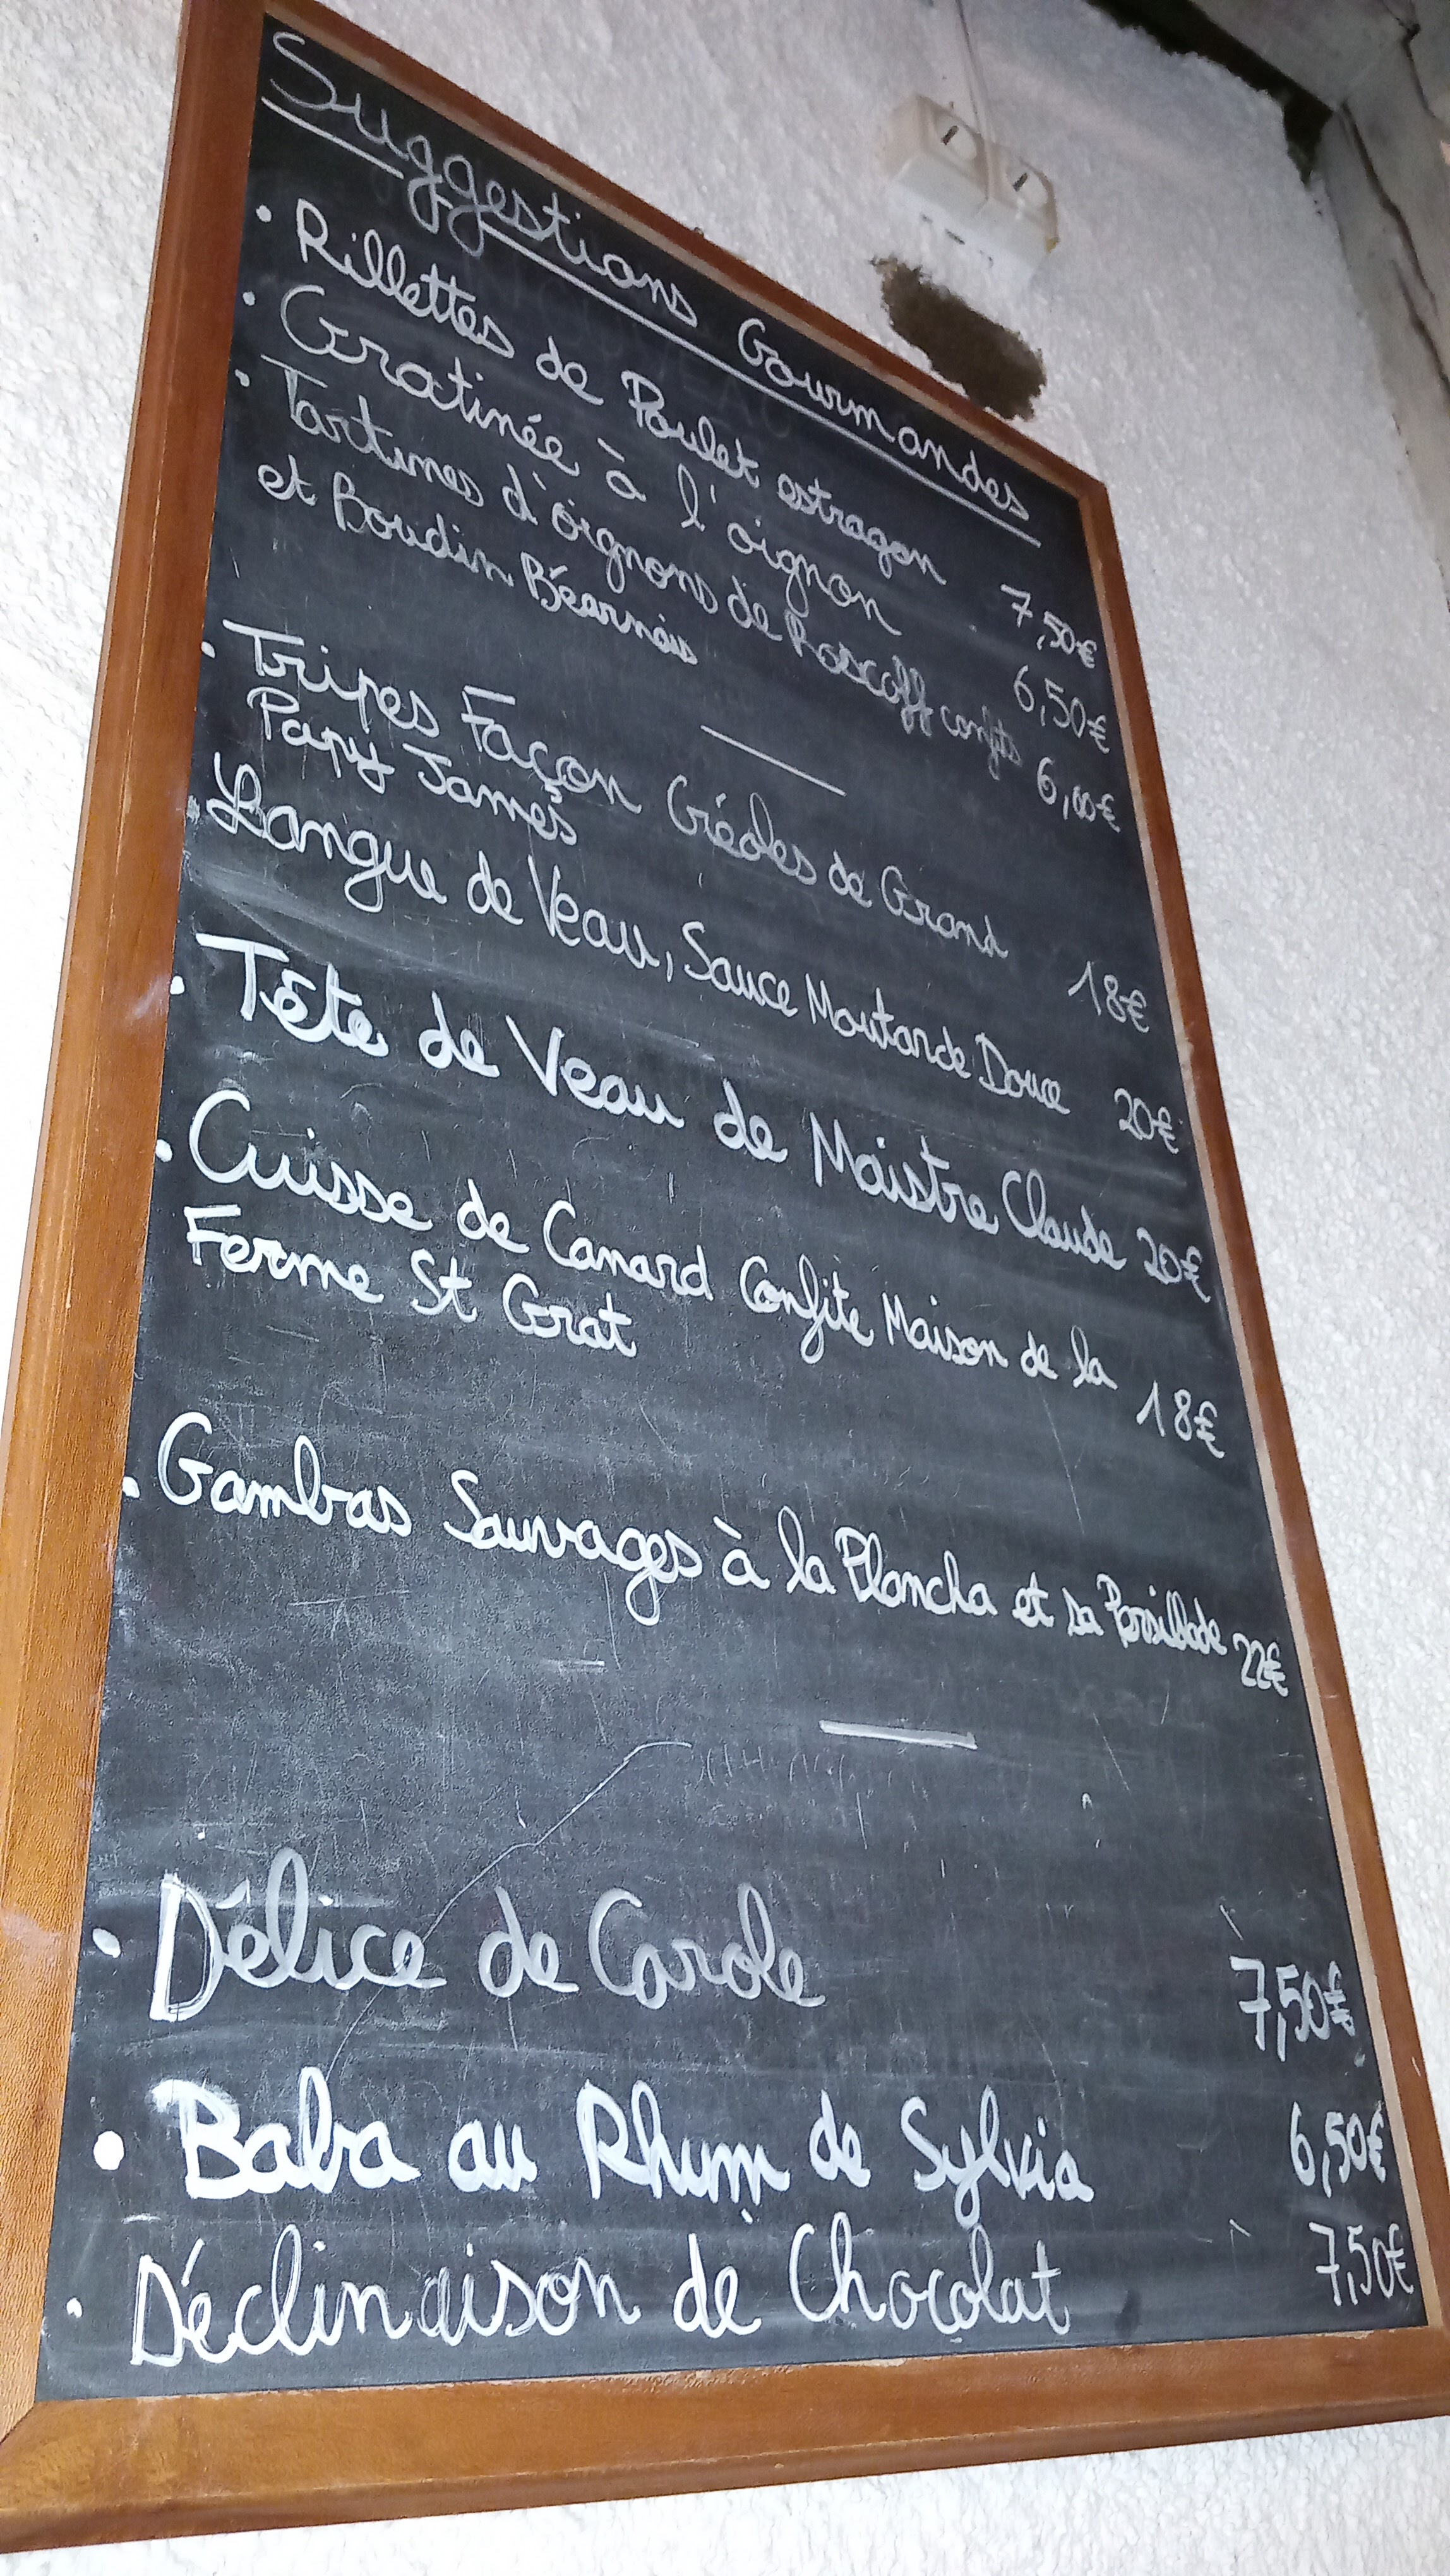 Suggestions Gourmandes
• Rillettes de Poulet estragon 7,50€
• Gratinée à l'oignon 6,50€
• Tartines d'oignons de Roscoff confits 6,00€
et Boudin Béarnais
• Tripes Façon Créoles de Grand 18€
Papy James
• Langue de Veau, Sauce Moutarde Douce 20€
• Tête de Veau de Maistre Claude 20€
• Cuisse de Canard Confite Maison de la 18€
Ferme St Grat
• Gambas Sauvages à la Plancha et sa Persillade 22€
• Délice de Carole 7,50€
• Baba au Rhum de Sylvia 6,50€
• Déclinaison de Chocolat 7,50€